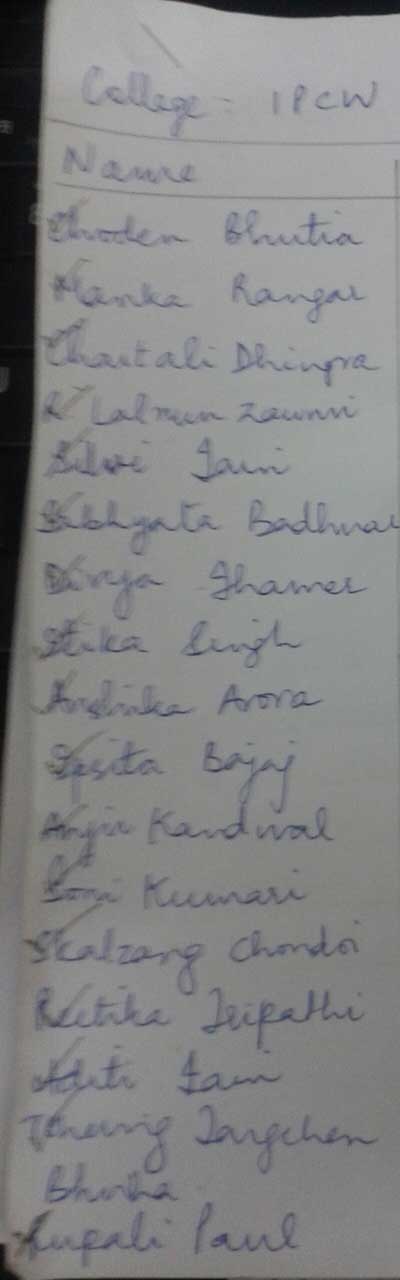 College : IPCW
Name
Choden Bhutia
Rangar
Chaitali Dhingra
R Lalmun Zawmi
Jain
Sabhyata Badhwar
Divya Thamer
Itika Singh
Anshika Arora
Ipsita Bajaj
Anju Kandwal
Soni Kumari
Skalzang Chondoi
Ritika Tripathi
Aditi Jain
Tshering
Bhutia
Rupali Paul